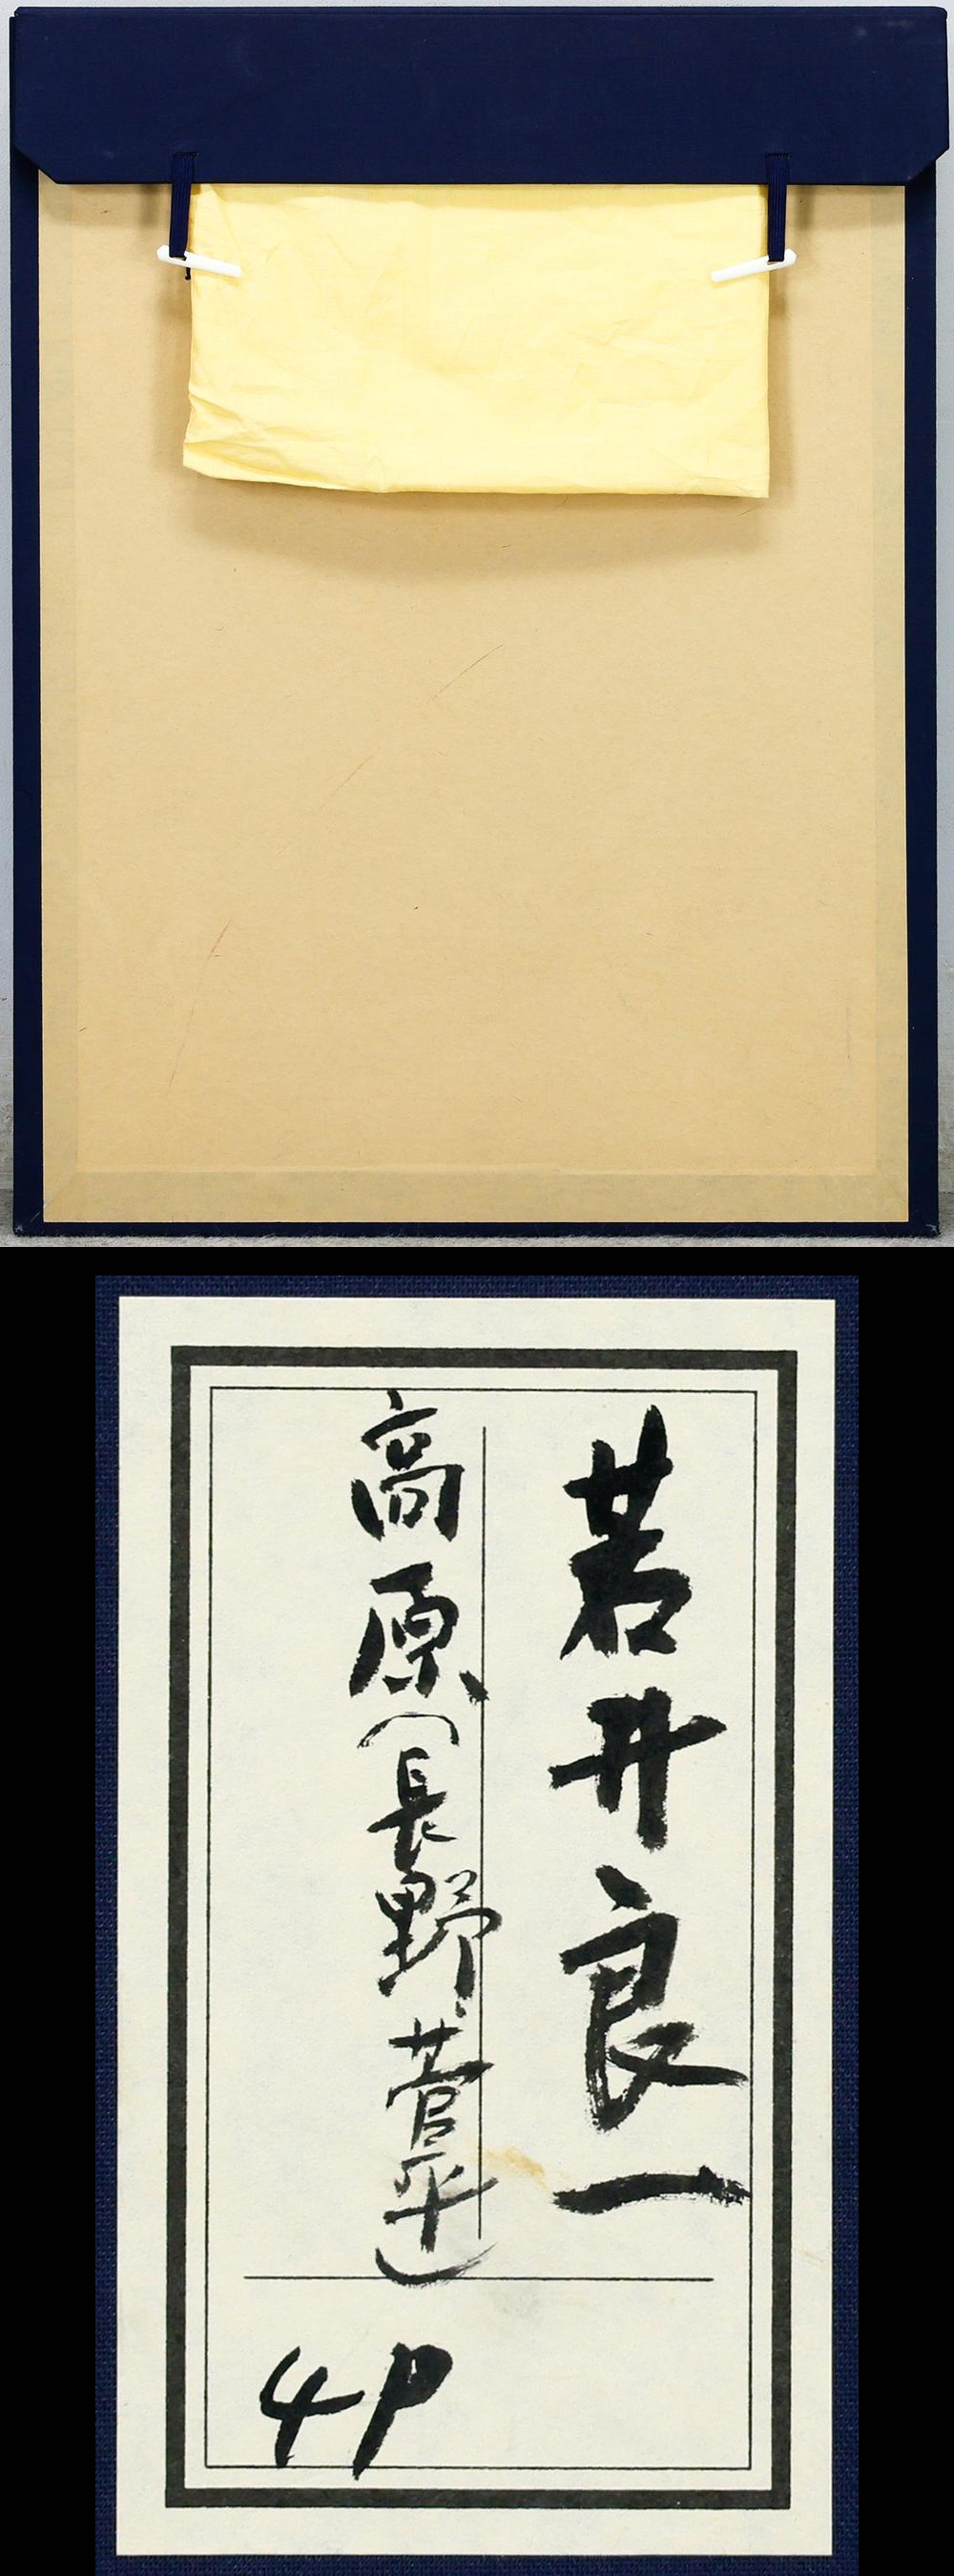 若井良一
高原(長野菅平)
4P